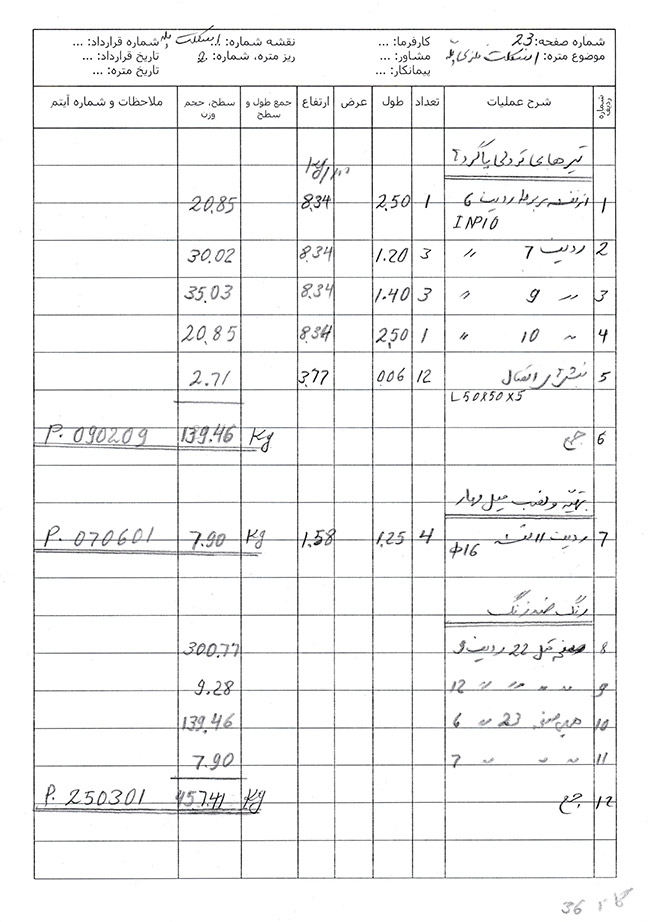 شماره صفحه: 23 کارفرما: ... نقشه شماره: اسکلت پله شماره قرارداد: ...
موضوع متره: اسکلت فلزی پله مشاور: ... ریز متره، شماره: 2 تاریخ قرارداد: ...
پیمانکار: ... تاریخ متره: ...
شماره ردیف شرح عملیات تعداد طول عرض ارتفاع جمع طول و سطح سطح، حجم وزن ملاحظات و شماره آیتم
تیرهای تودلی پاگرد:
Kg/m
1 از نقشه مربوط ردیف 6 1 2.50 8.34 20.85
INP10
2 ردیف 7 " 3 1.20 8.34 30.02
3 " 9 " 3 1.40 8.34 35.03
4 " 10 " 1 2.50 8.34 20.85
5 نبشی اتصال 12 0.06 3.77 2.71
L50X50X5
6 جمع Kg 139.46 P. 090209
تهیه و نصب میل مهار
7 ردیف 11 نقشه 4 1.25 1.58 Kg 7.90 P. 070601
Φ16
رنگ ضد زنگ
8 صفحه قبل 22 ردیف 9 300.77
9 " " " " 12 9.28
10 همین صفحه 23 " 6 139.46
11 " " " 7 7.90
12 جمع Kg 457.41 P. 250301
36